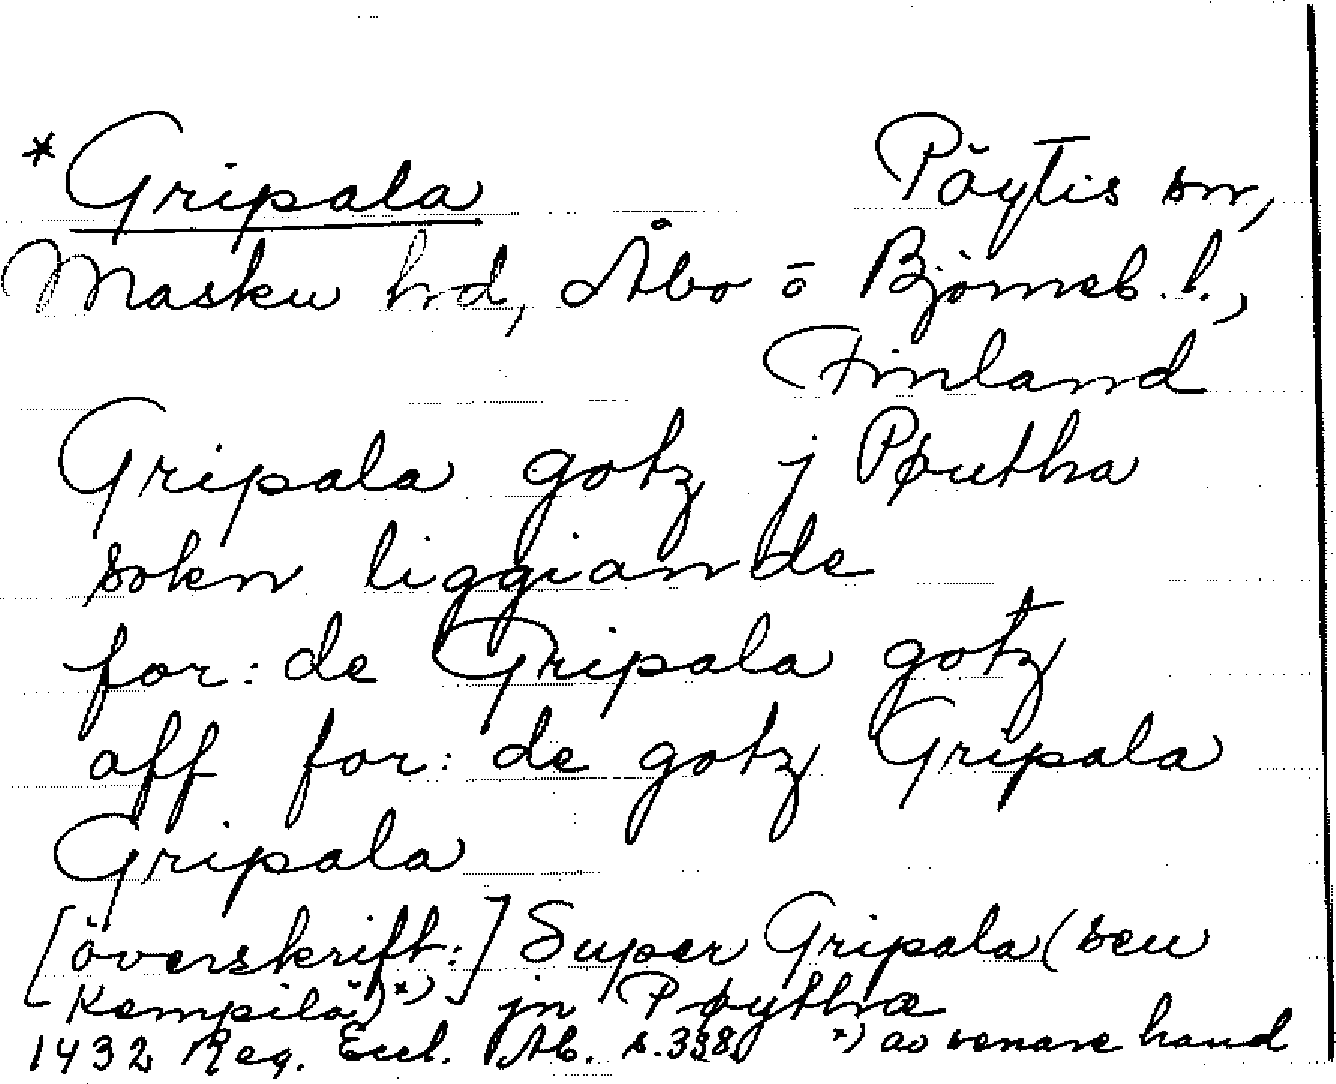 *Gripala Pöytis sn,
Masku hd, Åbo o Björneb. l.,
Finland
Gripala gotz j Pøutha
sokn liggiande
for: de Gripala gotz
aff for: de gotz Gripala
Gripala
[överskrift:] Super Gripala (seu
Kempilä)*) jn Pøythæ
1432 Reg. Eccl. Ab. s. 338 *) av senare hand